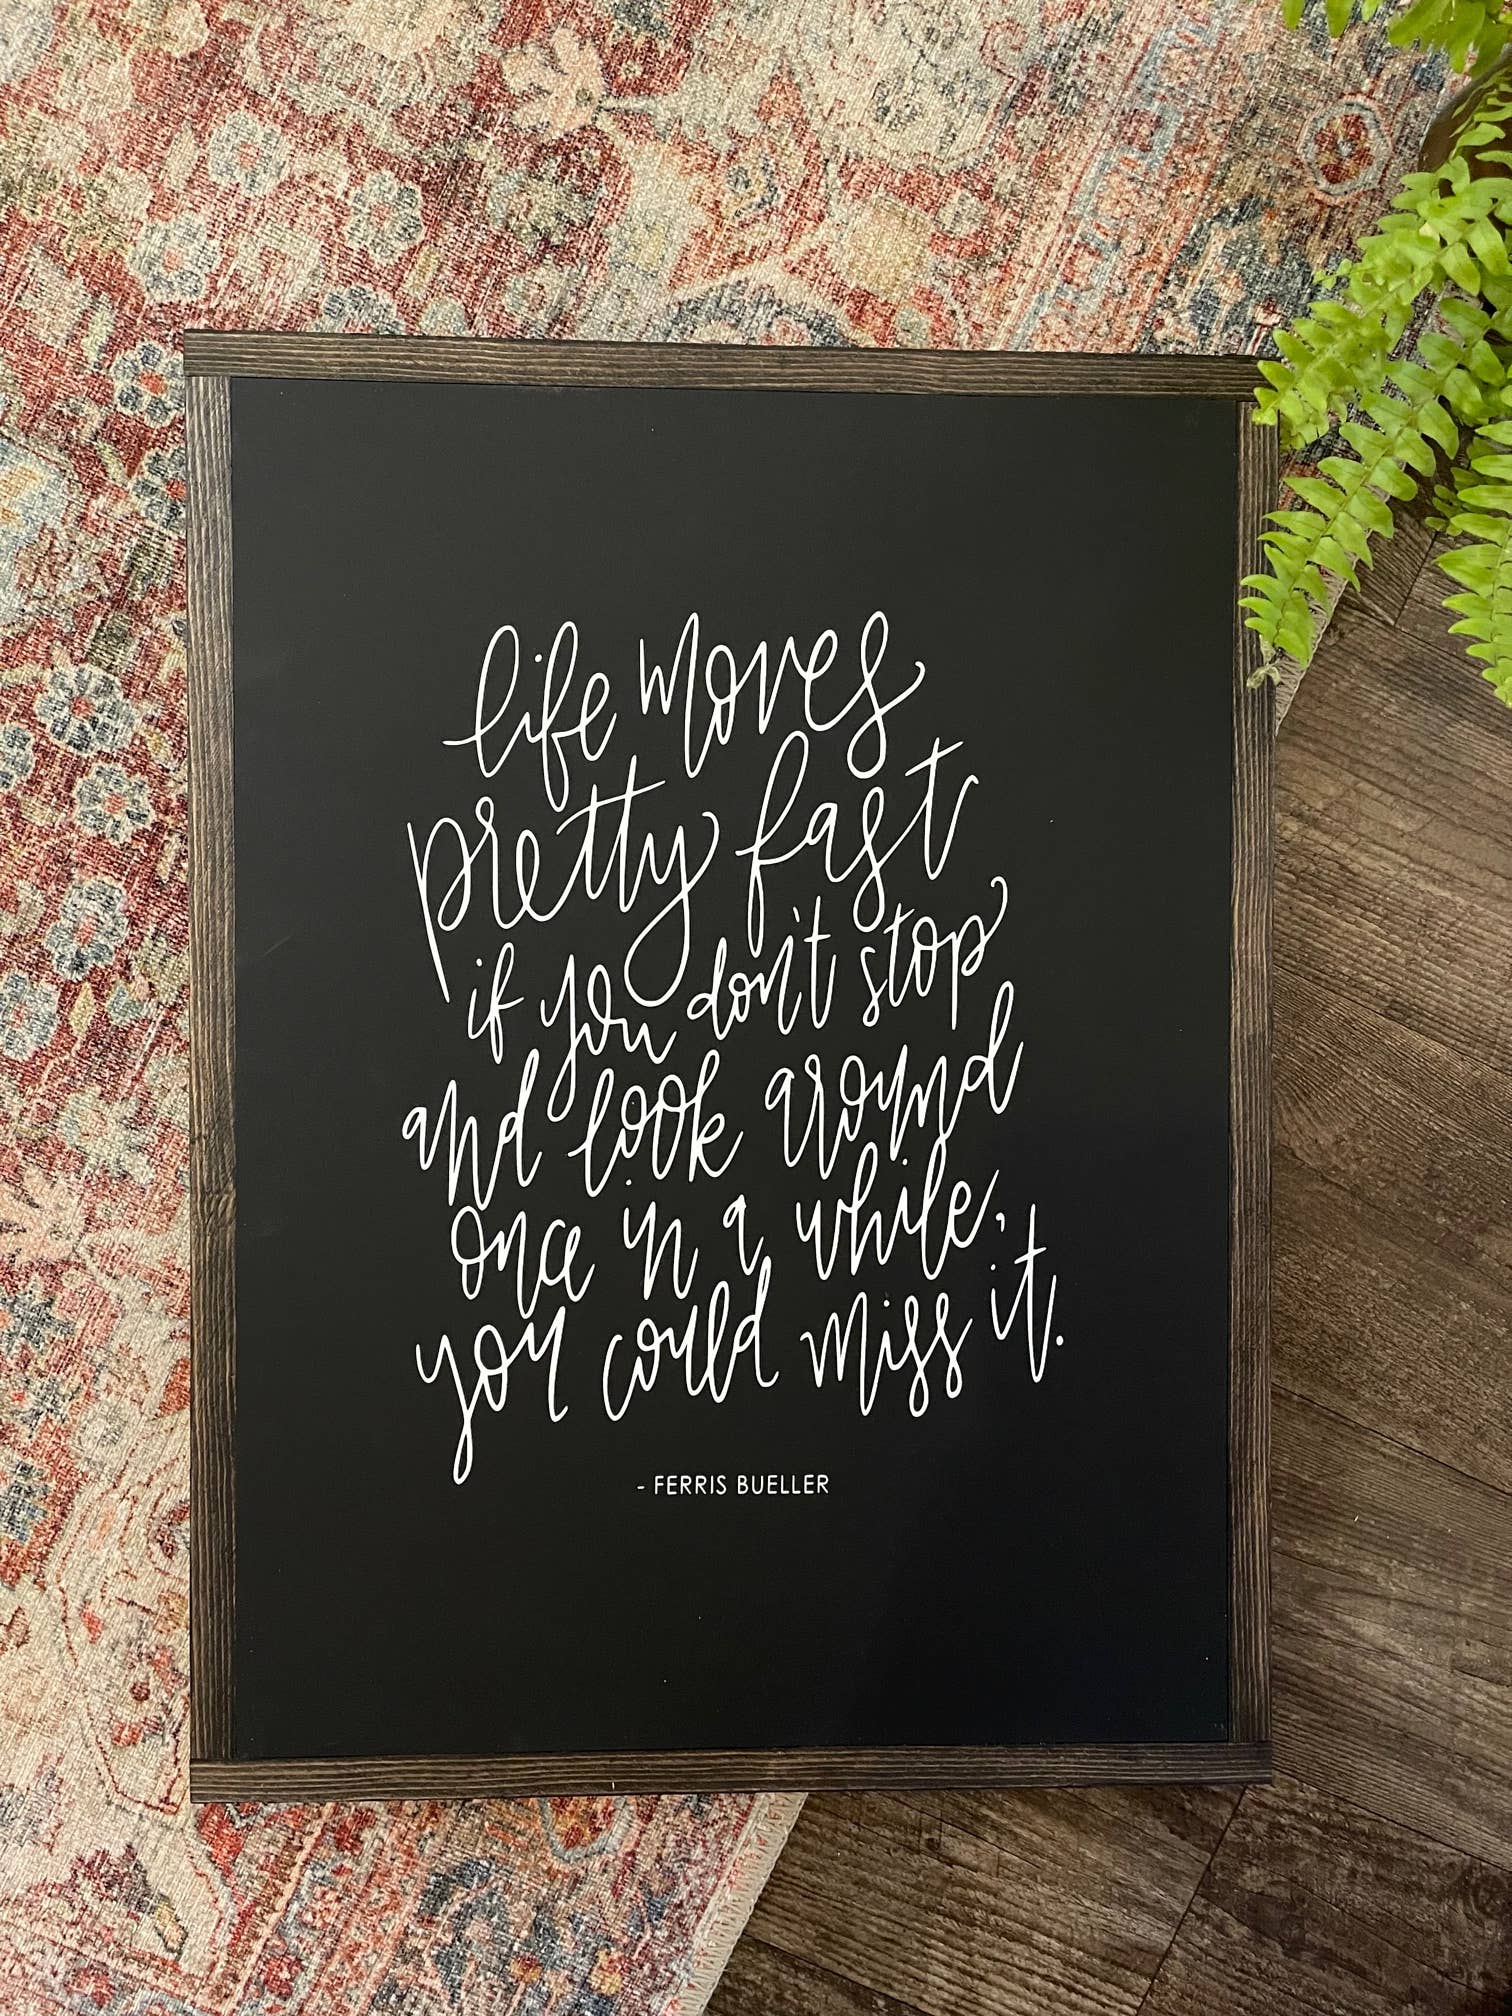 life moves
pretty fast
if you don't stop
and look around
once in a while,
you could miss it.
- FERRIS BUELLER